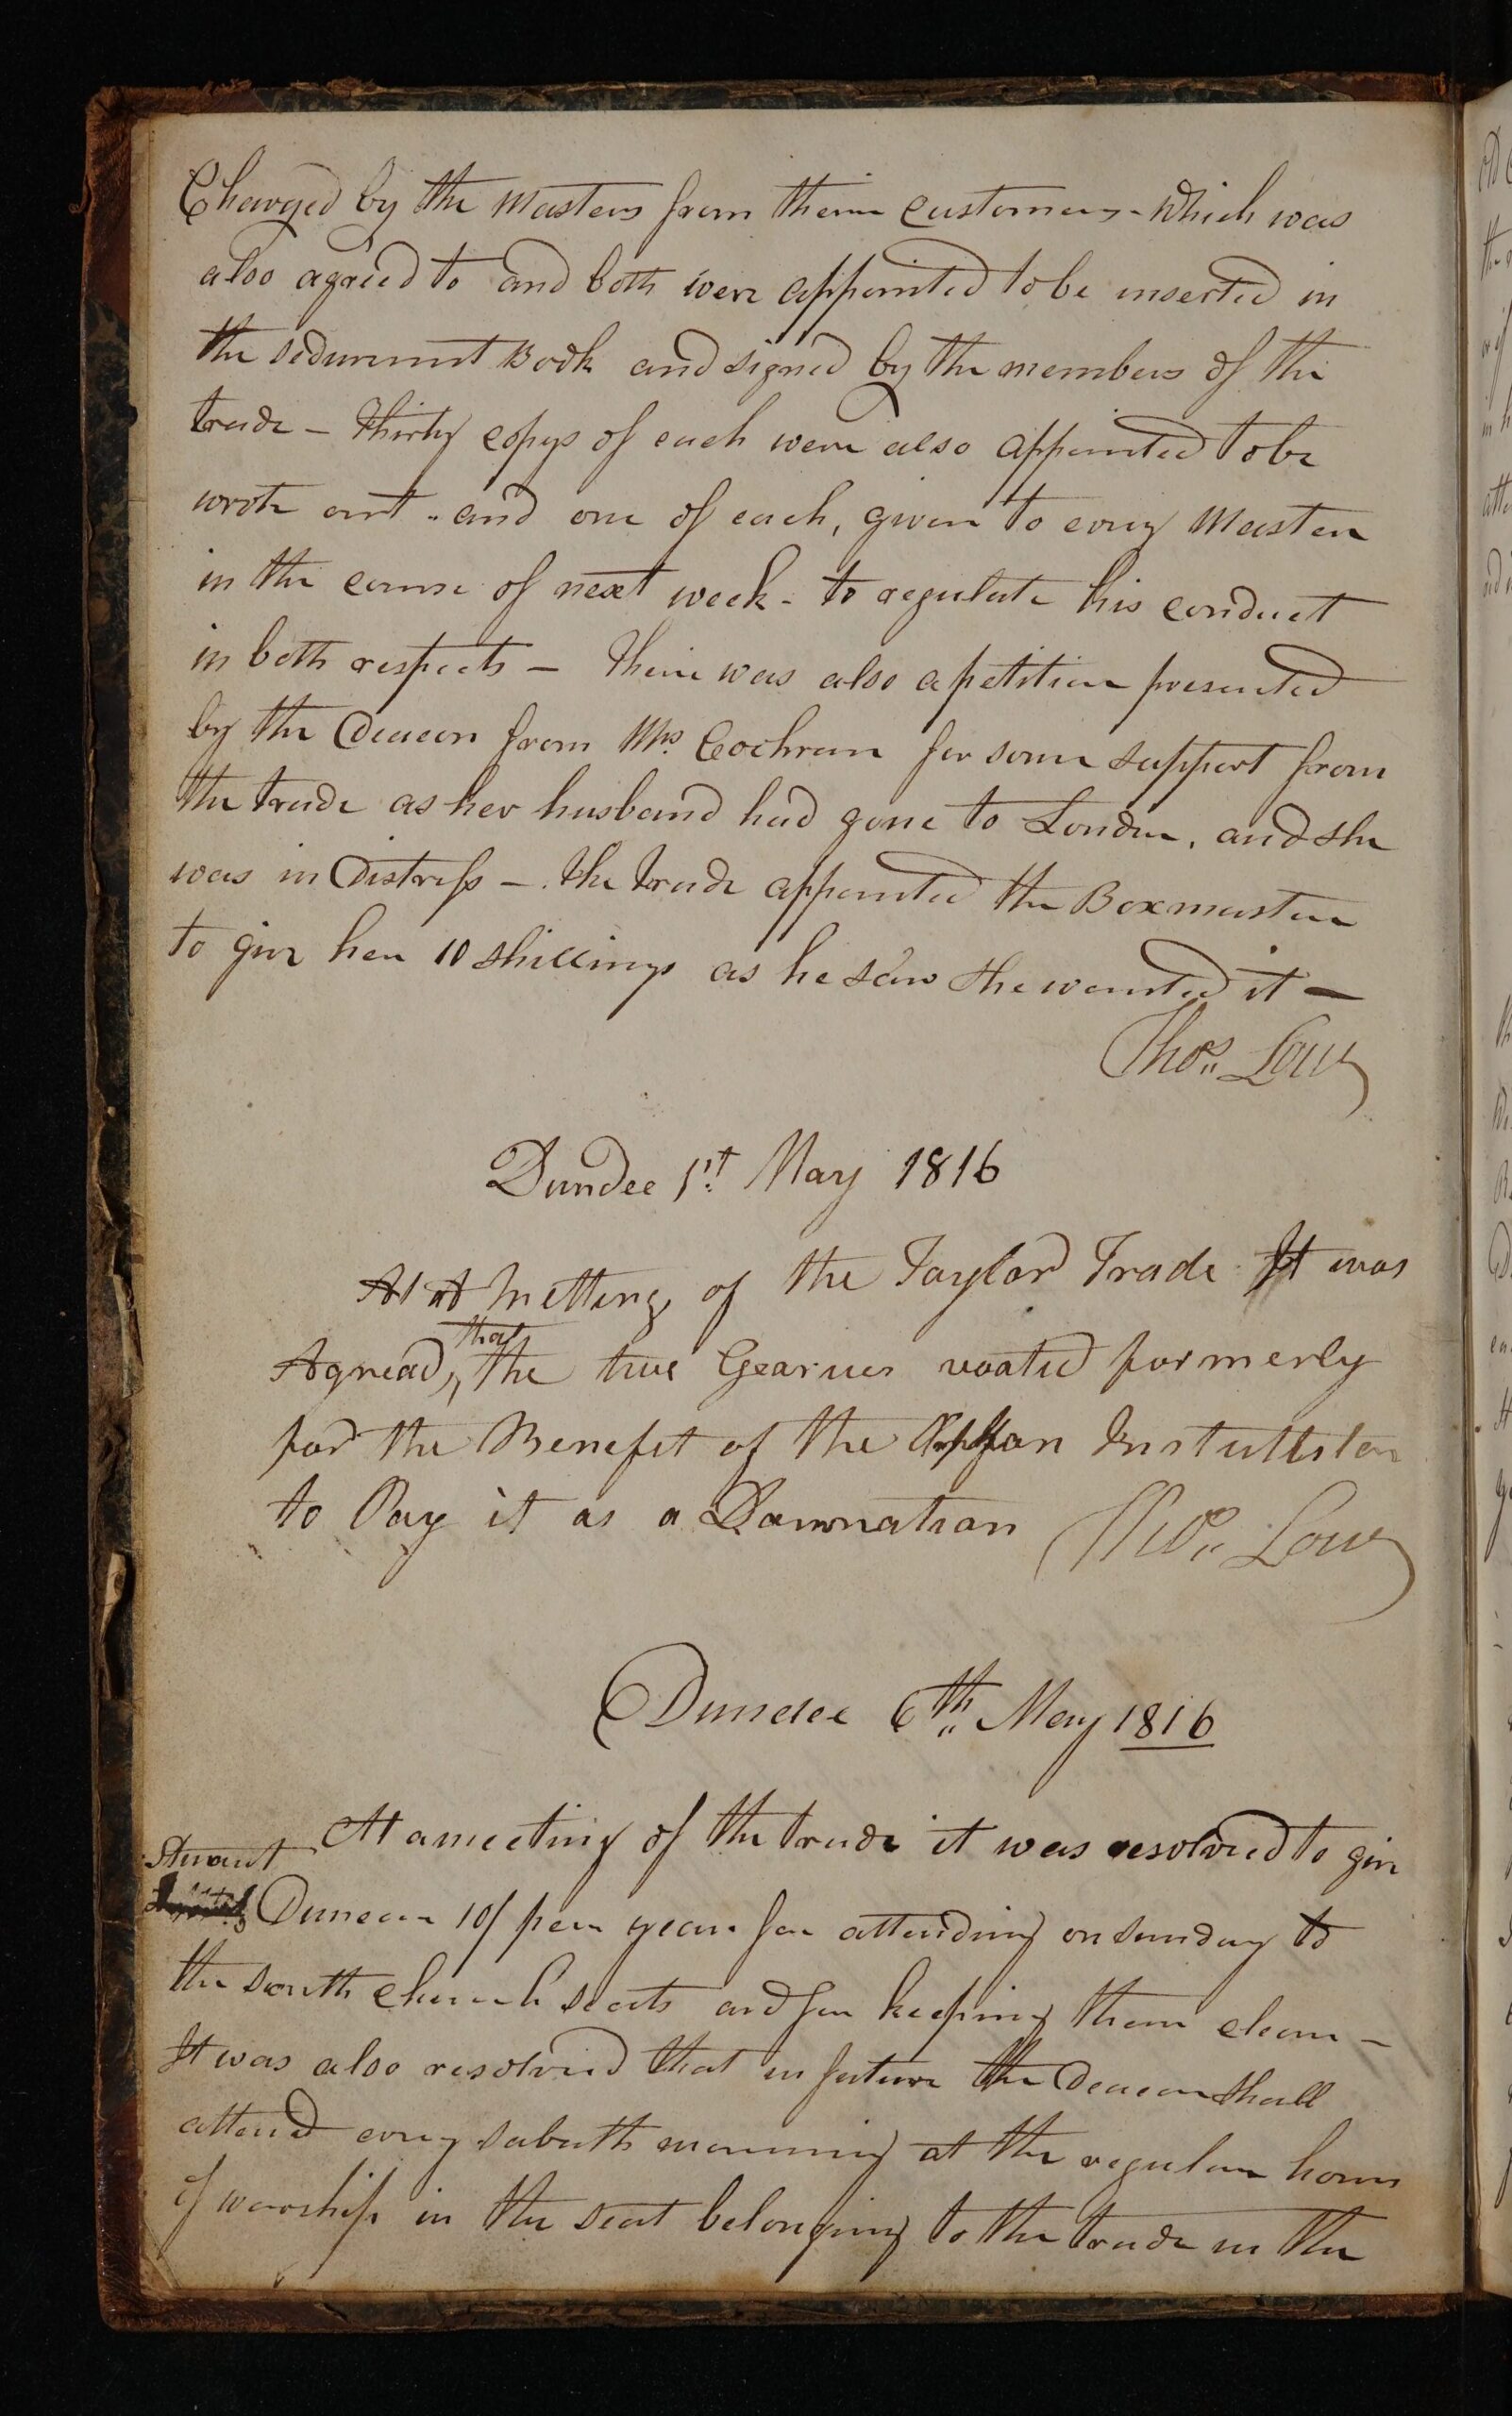 Charged by the Masters from their customers - which was
also agreed to and both were appointed to be inserted in
the sedurunt Book and signed by the members of the
trade - Thirty copys of each were also appointed to be
wrote out - and one of each, given to every Master
in the course of next week - to regulate his conduct
in both respects - Their was also a petition presented
by the Deacon from Mrs. Cochran for some support from
the trade as her husband had gone to London, and she
was in Distress - the trade appointed the Boxmaster
to give her 10 shillings as he saw she wanted it -
Thos. Low
Dundee 1st May 1816
At A Metting of the Taylor Trade It was
Agread, that the two Gearues voated formerly
for the Benefit of the Orphan Instuttslon
to Pay it as a Downation Thos. Low
Dundee 6th May 1816
At a meeting of the trade it was resolved to give
Stuart
Duncan 10/ per year for attending on sunday to
the south church seats and for keeping them clean -
It was also resolved that in future the Deacon shall
attend every sabath morning at the regular hours
of worship in the seat belonging to the trade in the